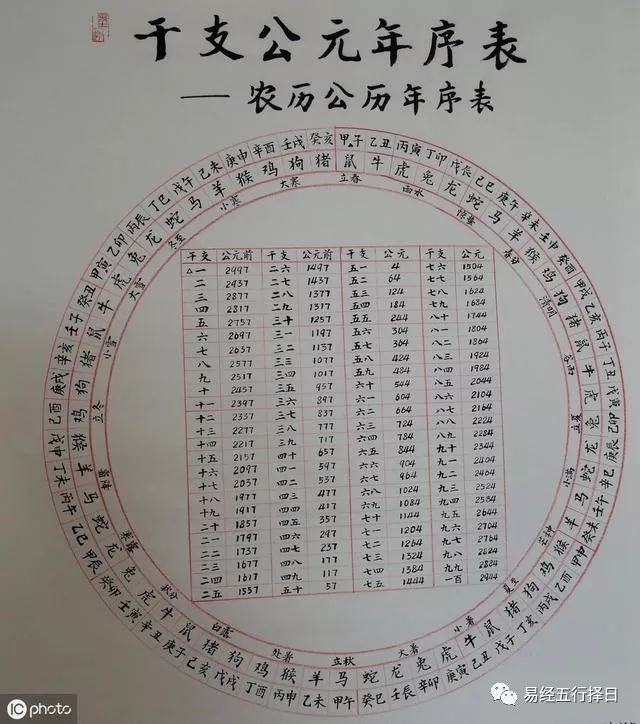 干支公元年序表
——农历公历年序表
甲子 乙丑 丙寅 丁卯 戊辰 己巳 庚午 辛未 壬申 癸酉 甲戌 乙亥 丙子 丁丑 戊寅 己卯 庚辰 辛巳 壬午 癸未 甲申 乙酉 丙戌 丁亥 戊子 己丑 庚寅 辛卯 壬辰 癸巳 甲午 乙未 丙申 丁酉 戊戌 己亥 庚子 辛丑 壬寅 癸卯 甲辰 乙巳 丙午 丁未 戊申 己酉 庚戌 辛亥 壬子 癸丑 甲寅 乙卯 丙辰 丁巳 戊午 己未 庚申 辛酉 壬戌 癸亥
鼠 牛 虎 兔 龙 蛇 马 羊 猴 鸡 狗 猪 鼠 牛 虎 兔 龙 蛇 马 羊 猴 鸡 狗 猪 鼠 牛 虎 兔 龙 蛇 马 羊 猴 鸡 狗 猪 鼠 牛 虎 兔 龙 蛇 马 羊 猴 鸡 狗 猪 鼠 牛 虎 兔 龙 蛇 马 羊 猴 鸡 狗 猪
立春 雨水 惊蛰 春分 清明 谷雨 立夏 小满 芒种 夏至 小暑 大暑 立秋 处暑 白露 秋分 寒露 霜降 立冬 小雪 大雪 冬至 小寒 大寒
干支 公元前 干支 公元前 干支 公元 干支 公元
△一 2997 二六 1497 五一 4 七六 1504
二 2937 二七 1437 五二 64 七七 1564
三 2877 二八 1377 五三 124 七八 1624
四 2817 二九 1317 五四 184 七九 1684
五 2757 三十 1257 五五 244 八十 1744
六 2697 三一 1197 五六 304 八一 1804
七 2637 三二 1137 五七 364 八二 1864
八 2577 三三 1077 五八 424 八三 1924
九 2517 三四 1017 五九 484 八四 1984
十 2457 三五 957 六十 544 八五 2044
十一 2397 三六 897 六一 604 八六 2104
十二 2337 三七 837 六二 664 八七 2164
十三 2277 三八 777 六三 724 八八 2224
十四 2217 三九 717 六四 784 八九 2284
十五 2157 四十 657 六五 844 九十 2344
十六 2097 四一 597 六六 904 九一 2404
十七 2037 四二 537 六七 964 九二 2464
十八 1977 四三 477 六八 1024 九三 2524
十九 1917 四四 417 六九 1084 九四 2584
二十 1857 四五 357 七十 1144 九五 2644
二一 1797 四六 297 七一 1204 九六 2704
二二 1737 四七 237 七二 1264 九七 2764
二三 1677 四八 177 七三 1324 九八 2824
二四 1617 四九 117 七四 1384 九九 2884
二五 1557 五十 57 七五 1444 一百 2944
iC photo
易经五行择日